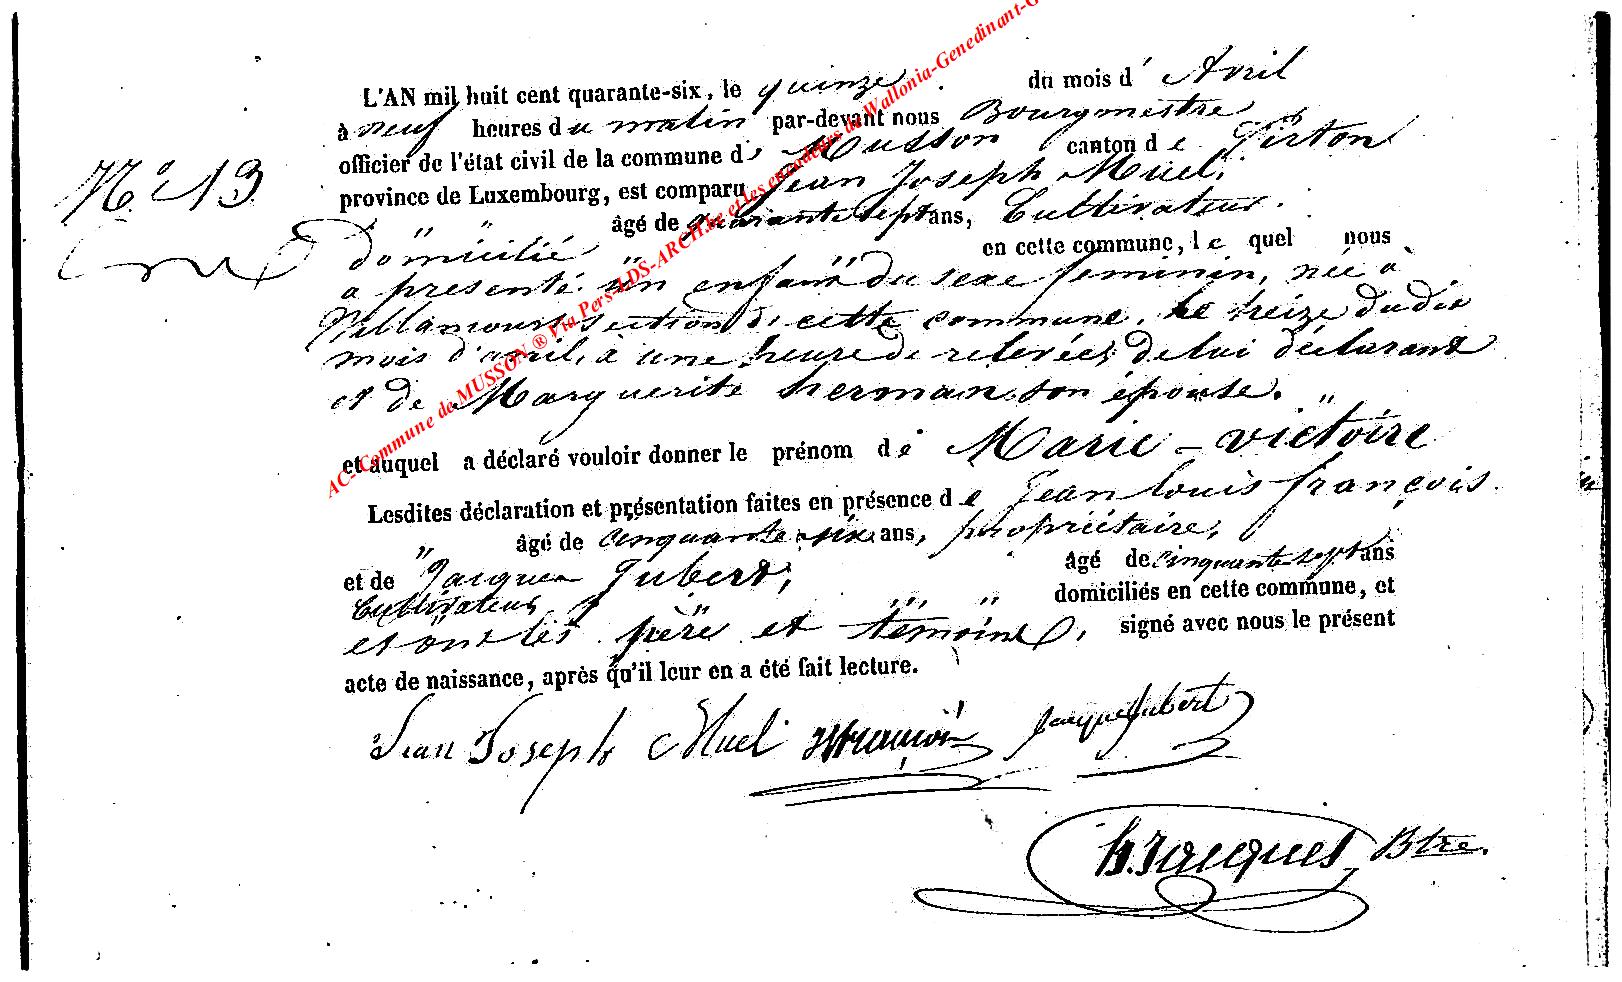 L'AN mil huit cent quarante-six, le quinze du mois d' Avril
à neuf heures du matin par-devant nous Bourgmestre
officier de l'état civil de la commune de Musson canton de Virton
province de Luxembourg, est comparu Jean Joseph Muel,
N° 13
âgé de quarante sept ans, Cultivateur.
domicilié en cette commune, le quel nous
a présenté un enfant du sexe féminin, née à
Willancourt section de cette commune, le treize dudit
mois d'avril, à une heure de relevée, de lui déclarant
et de Marguerite herman son épouse.
et auquel a déclaré vouloir donner le prénom de Marie-victoire
Lesdites déclaration et présentation faites en présence de Jean louis françois
âgé de cinquante-six ans, propriétaire,
et de Jacques Jubert, âgé de cinquante-sept ans
Cultivateur, domiciliés en cette commune, et
et ont les père et témoins, signé avec nous le présent
acte de naissance, après qu'il leur en a été fait lecture.
Jean Joseph Muel françois Jacque Jubert
H. Jacques Btre.
AC-Commune de MUSSON ® Via Pers-LDS-ARCH.be et les encodeurs de Wallonia-Genedinant-G